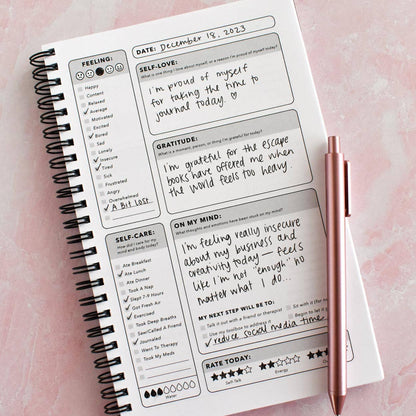 DATE: December 18, 2023
FEELING:
Happy
Content
Relaxed
Average
Motivated
Excited
Bored
Sad
Lonely
Insecure
Tired
Sick
Frustrated
Angry
Overwhelmed
A Bit Lost
SELF-LOVE:
What is one thing I love about myself, or a reason I'm proud of myself today?
i'm proud of myself
for taking the time to
journal today. ♡
GRATITUDE:
What is a moment, person, or thing I'm grateful for today?
i'm grateful for the escape
books have offered me when
the world feels too heavy.
SELF-CARE:
How did I care for my
mind and body today?
Ate Breakfast
Ate Lunch
Ate Dinner
Took A Nap
Slept 7-9 Hours
Got Fresh Air
Exercised
Took Deep Breaths
Seen/Called A Friend
Journaled
Went To Therapy
Took My Meds
Water
ON MY MIND:
What thoughts and emotions have been stuck on my mind?
i'm feeling really insecure
about my business and
creativity today — feels
like i'm not "enough" no
matter what i do...
MY NEXT STEP WILL BE TO:
Talk it out with a friend or therapist
So with it (for
Use my toolbox to address it
reduce social media time
RATE TODAY:
Self-Talk
Energy